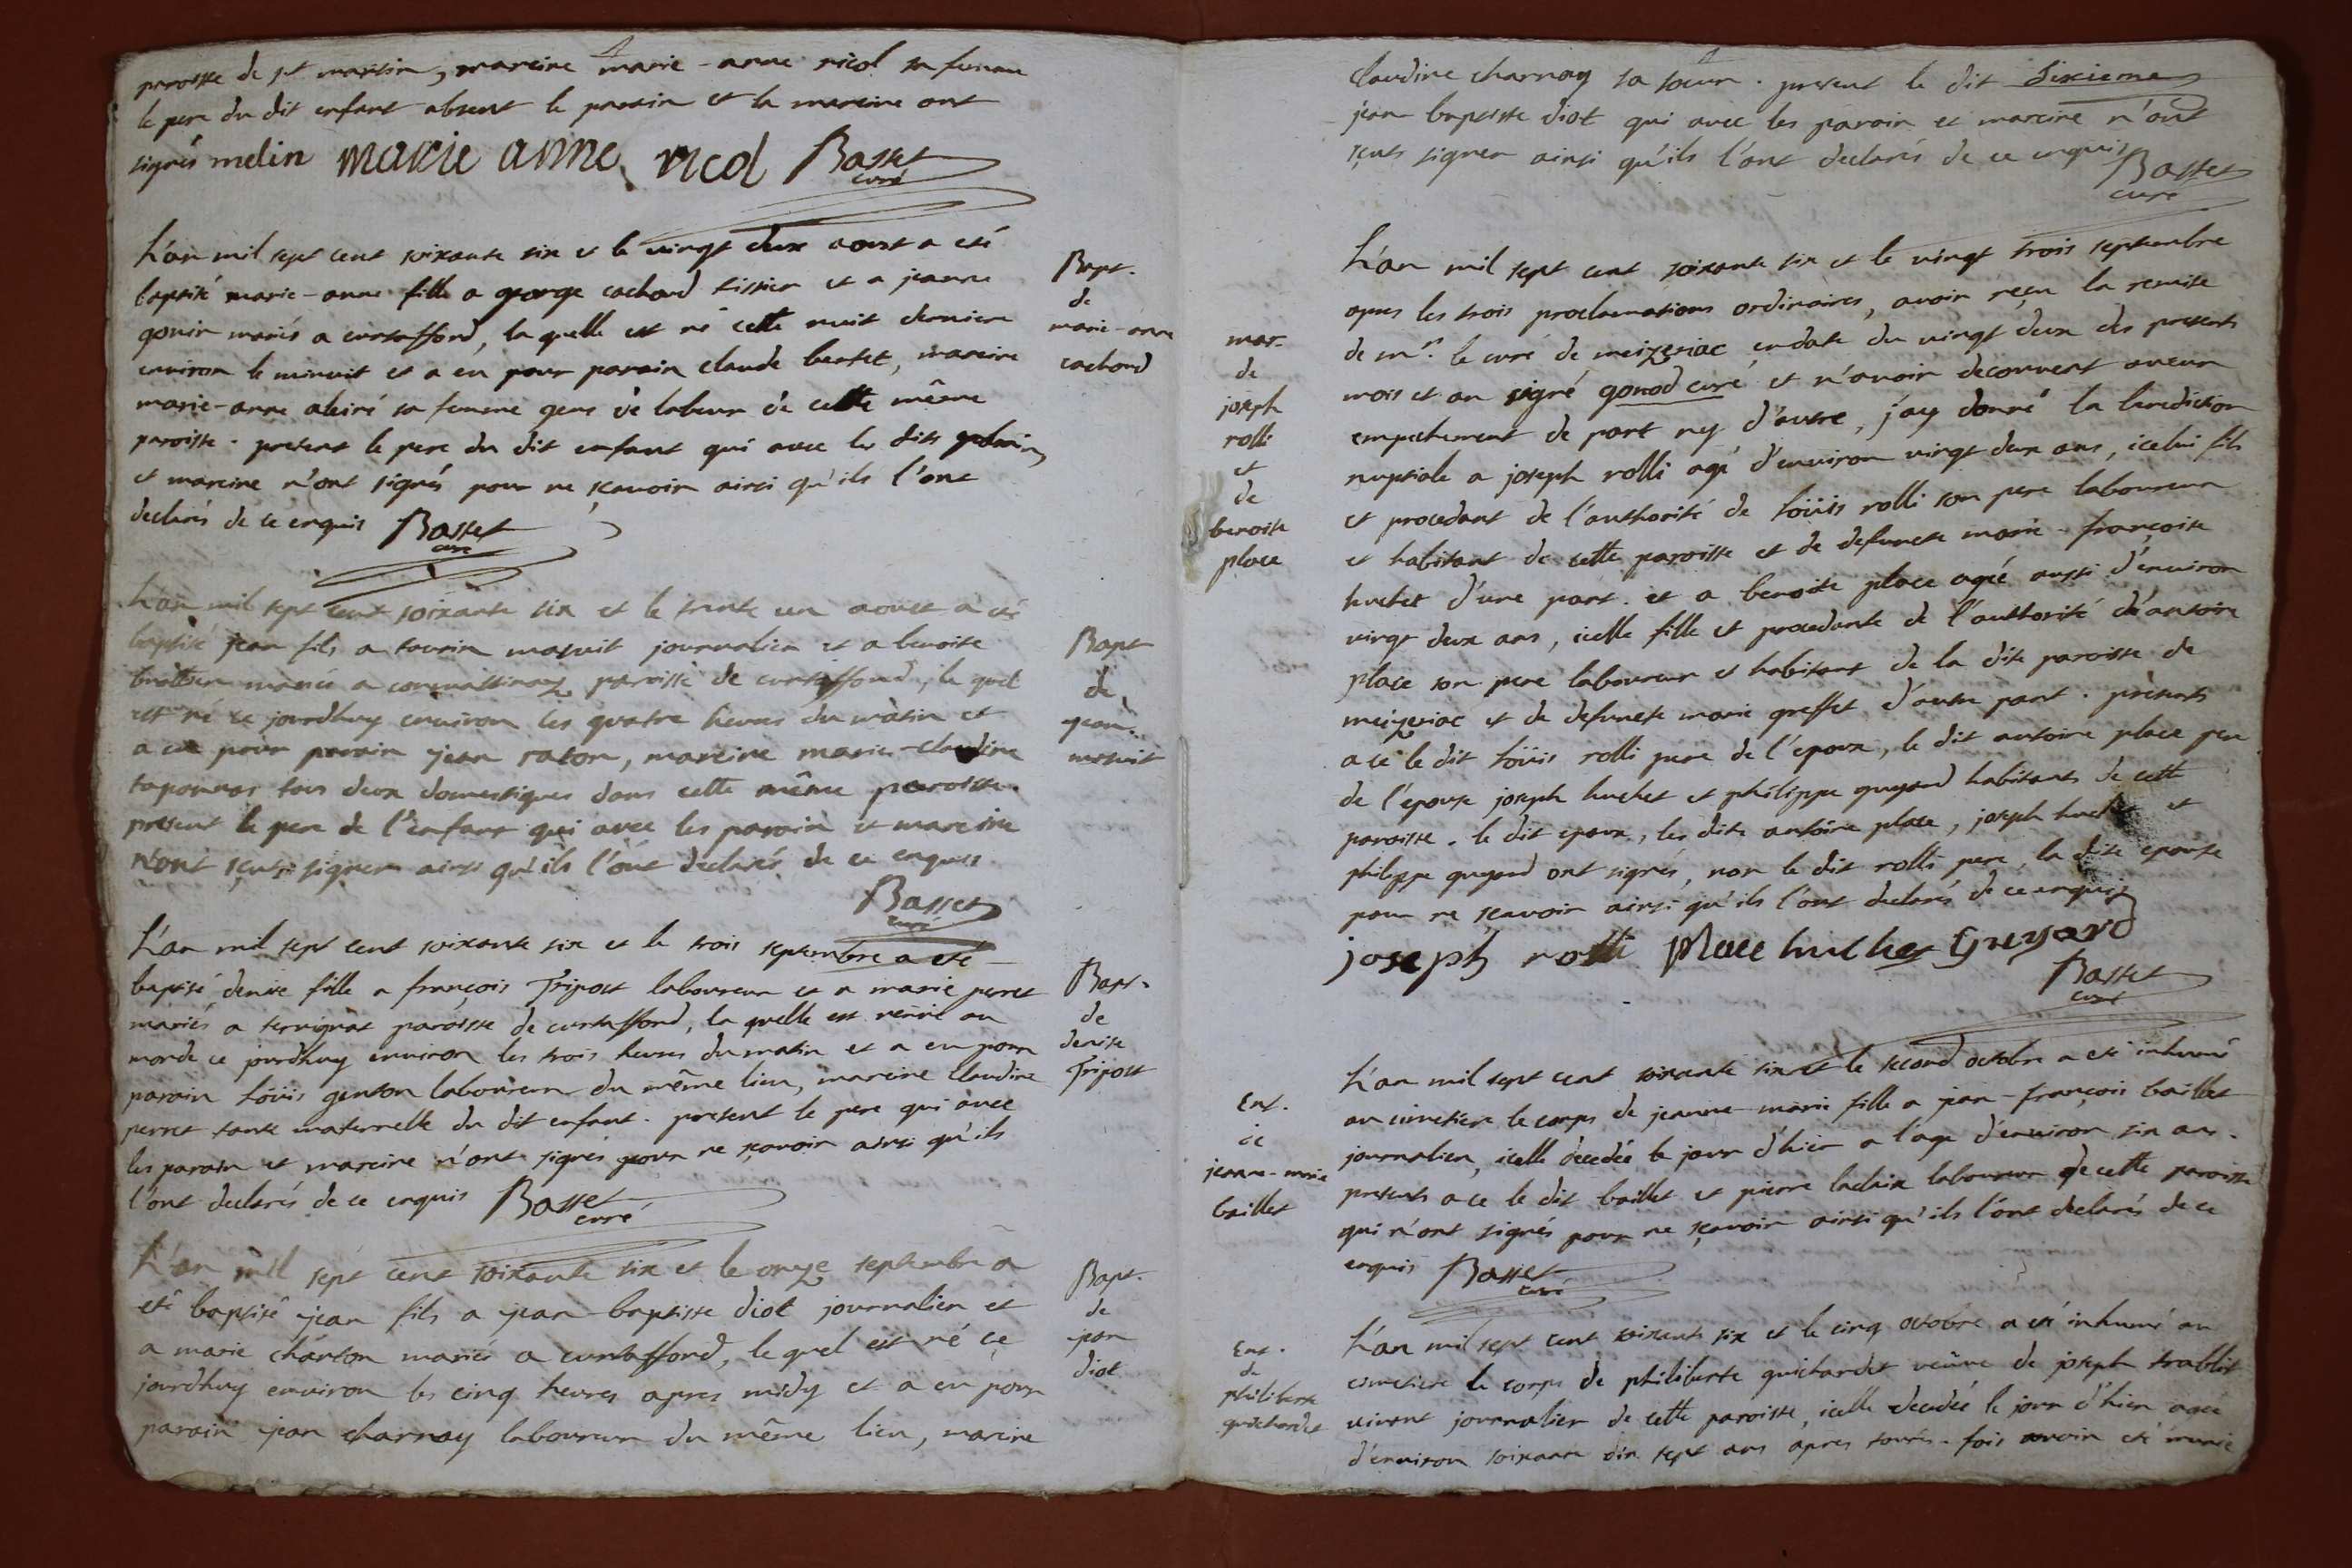 paroisse de st martin, mareine marie-anne nicol sa femme
le pere du dit enfant absent le parain et la mareine ont
signés melin marie anne nicol Basset
curé
L'an mil sept cent soixante six et le vingt deux aoust a eté
baptisé marie-anne fille a george cochard tissier et a jeanne
gonin mariés a curtaffond, la quelle est né cette nuit derniere
environ le minuit et a eu pour parain claude bertet, mareine
marie-anne sa femme gens de labeur de cette même
paroisse. present le pere du dit enfant qui avec les dits parain
et mareine n'ont signés pour ne sçavoir ainsi qu'ils l'ont
declarés de ce enquis Basset
curé
Bapt.
de
marie-anne
cochard
L'an mil sept cent soixante six et le trente un aoust a eté
baptisé jean fils a taurin masuit journalier et a benoite
mariés a paroisse de curtaffond, le quel
est né ce jourdhuy environ les quatre heures du matin et
a eu pour parain jean raton, mareine marie-claudine
taponnas tous deux domestiques dans cette même paroisse.
present le pere de l'enfant qui avec les parain et mareine
n'ont sçeuts signer ainsi qu'ils l'ont declarés de ce enquis
Basset
curé
Bapt
de
jean
masuit
L'an mil sept cent soixante six et le trois septembre a eté
baptisé denise fille a françois Tripost laboureur et a marie perret
mariés a servignat paroisse de curtaffond, la quelle est venüe au
monde ce jourdhuy environ les trois heures du matin et a eu pour
parain loüis genton laboureur du même lieu, mareine claudine
perret tante maternelle du dit enfant. present le pere qui avec
les parain et mareine n'ont signés pour ne sçavoir ainsi qu'ils
l'ont declarés de ce enquis Basset
curé
Bapt.
de
denise
Tripost
L'an mil sept cent soixante six et le onze septembre a
eté baptisé jean fils a jean-baptiste diot journalier et
a marie charton mariés a curtaffond, le quel est né ce
jourdhuy environ les cinq heures apres midy et a eu pour
parain jean charnay laboureur du même lieu, mareine
Bapt.
de
jean
diot
claudine charnay sa soeur. present le dit Sixieme
jean baptiste diot qui avec les parain et mareine n'ont
sçeuts signer ainsi qu'ils l'ont declarés de ce enquis Basset
curé
mar.
de
joseph
rolli
et
de
benoite
place
L'an mil sept cent soixante six et le vingt trois septembre
apres les trois proclamations ordinaires, avoir reçu la remise
de mr. le curé de meizeriac en date du vingt deux des presents
mois et an signé gonod curé et n'avoir decouvert aucun
empechement de part ny d'autre, j'ay donné la benediction
nuptiale a joseph rolli agé d'environ vingt deux ans, icelui fils
et procedant de l'authorité de loüis rolli son pere laboureur
et habitant de cette paroisse et de defuncte marie-françoise
huchet d'une part. et a benoite place agée aussi d'environ
vingt deux ans, icelle fille et procedante de l'authorité d'antoine
place son pere laboureur et habitant de la dite paroisse de
meizeriac et de defuncte marie greffet d'autre part. presents
a ce le dit loüis rolli pere de l'epoux, le dit antoine place pere
de l'epouse joseph huchet et philippe guyard habitants de cette
paroisse. le dit epoux, les dits antoine place, joseph huchet et
philippe guyard ont signés, non le dit rolli pere, la dite epouse
pour ne sçavoir ainsi qu'ils l'ont declarés de ce enquis
joseph rolli place huchet Guyard
Basset
curé
Ent.
de
jeanne-marie
baillet
L'an mil sept cent soixante six et le second octobre a eté inhumé
au cimetiere le corps de jeanne-marie fille a jean-françois baillet
journalier, icelle decedée le jour d'hier a l'age d'environ six ans.
presents a ce le dit baillet et pierre laclaix laboureur de cette paroisse
qui n'ont signés pour ne sçavoir ainsi qu'ils l'ont declarés de ce
enquis Basset
curé
Ent.
de
philiberte
guichardet
L'an mil sept cent soixante six et le cinq octobre a eté inhumé au
cimetiere le corps de philiberte guichardet veüve de joseph trablet
vivant journalier de cette paroisse, icelle decedée le jour d'hier agée
d'environ soixante dix sept ans apres toutes-fois avoir eté munie